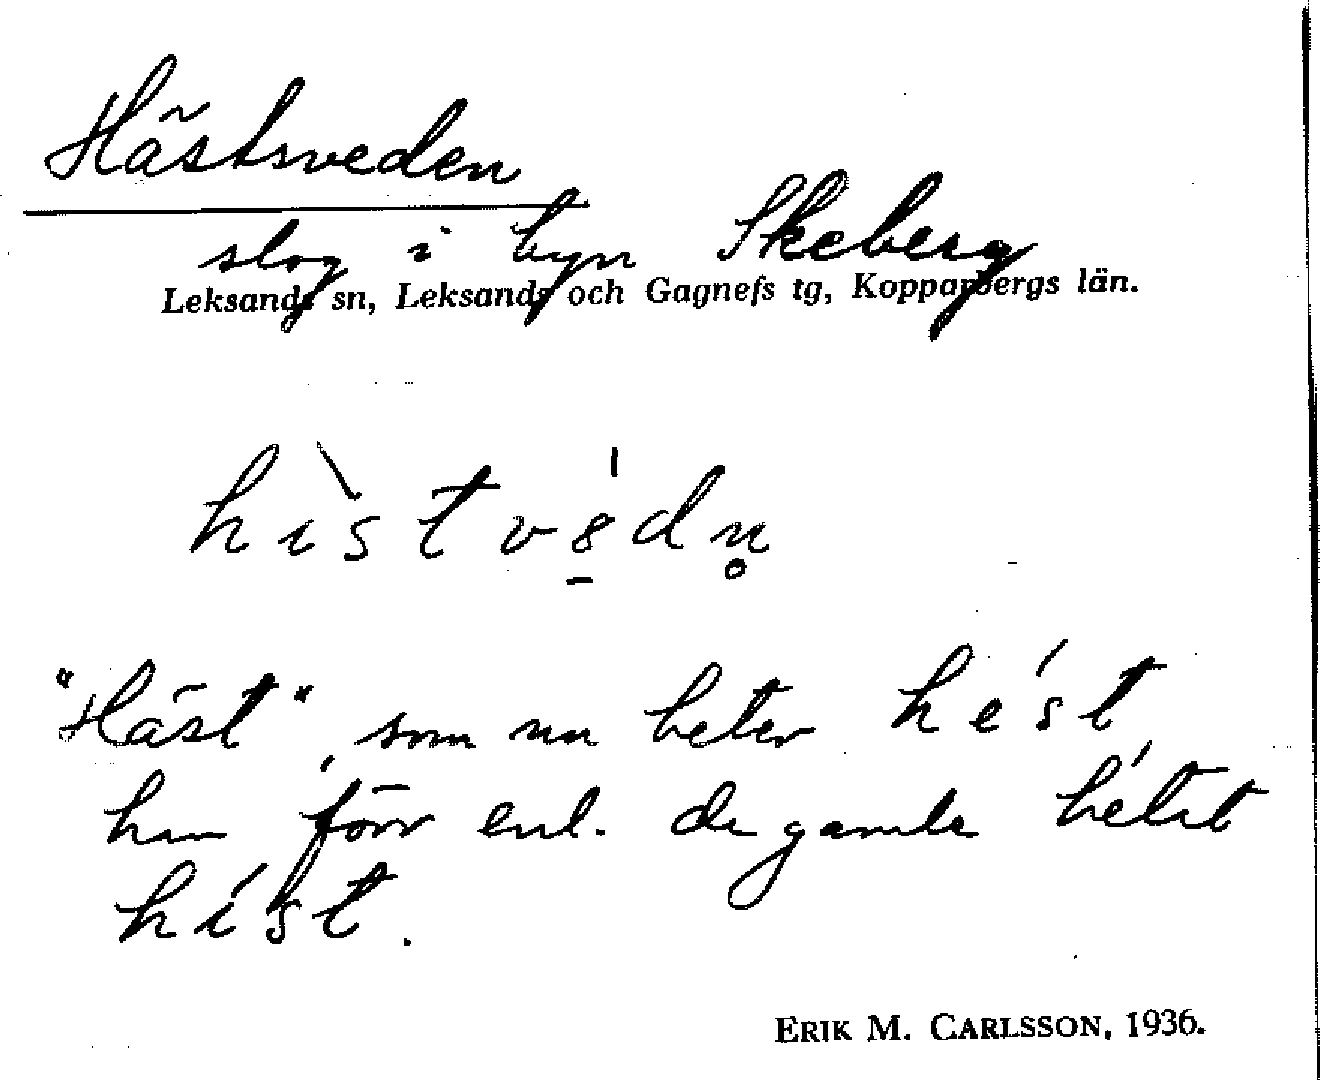 Hästsveden
slog i byn Skeberg
Leksands sn, Leksands och Gagnefs tg, Kopparbergs län.
"Häst", som nu heter hést
har förr enl. de gamla hétat
híst.
ERIK M. CARLSSON, 1936.